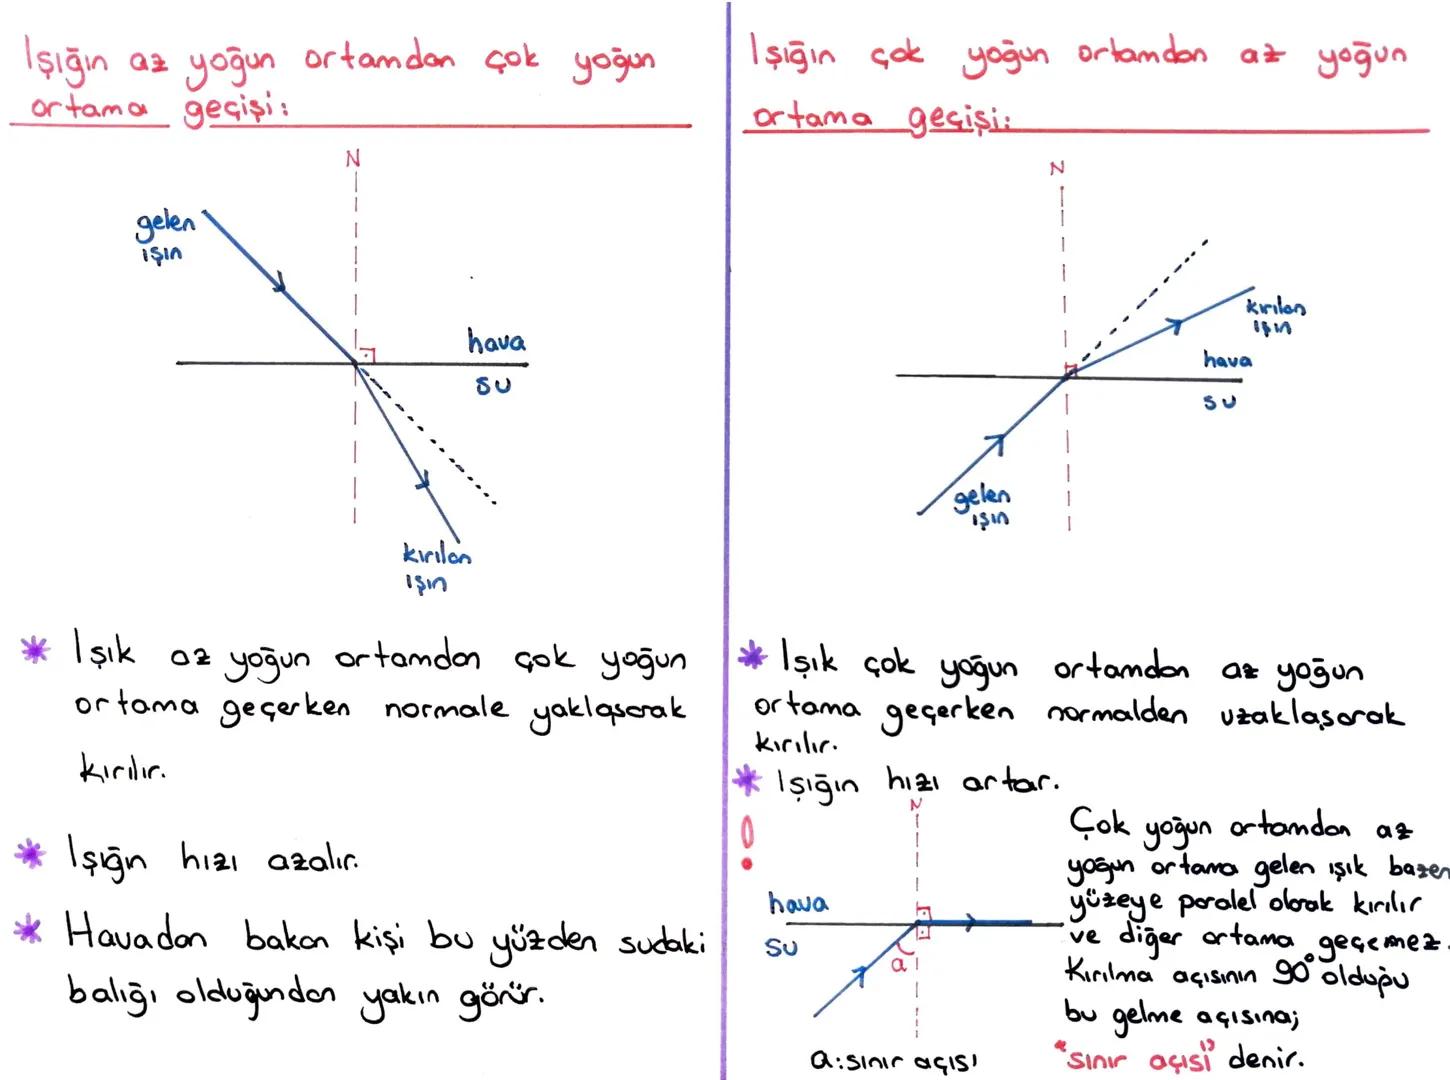 Işığın az yoğun ortamdan çok yoğun
ortama geçişi:
N
gelen
ışın
hava
su
kırılan
ışın
* Işık az yoğun ortamdan çok yoğun
ortama geçerken normale yaklaşarak
kırılır.
* Işığın hızı azalır.
* Havadan bakan kişi bu yüzden sudaki
balığı olduğundan yakın görür.
Işığın çok yoğun ortamdan az yoğun
ortama geçişi:
N
kırılan
ışın
hava
su
gelen
ışın
* Işık çok yoğun ortamdan az yoğun
ortama geçerken normalden uzaklaşarak
kırılır.
* Işığın hızı artar.
!
N
hava
su
a
a: sınır açısı
Çok yoğun ortamdan az
yoğun ortama gelen ışık bazen
yüzeye paralel olarak kırılır
ve diğer ortama geçemez.
Kırılma açısının 90° olduğu
bu gelme açısına;
"sınır açısı" denir.